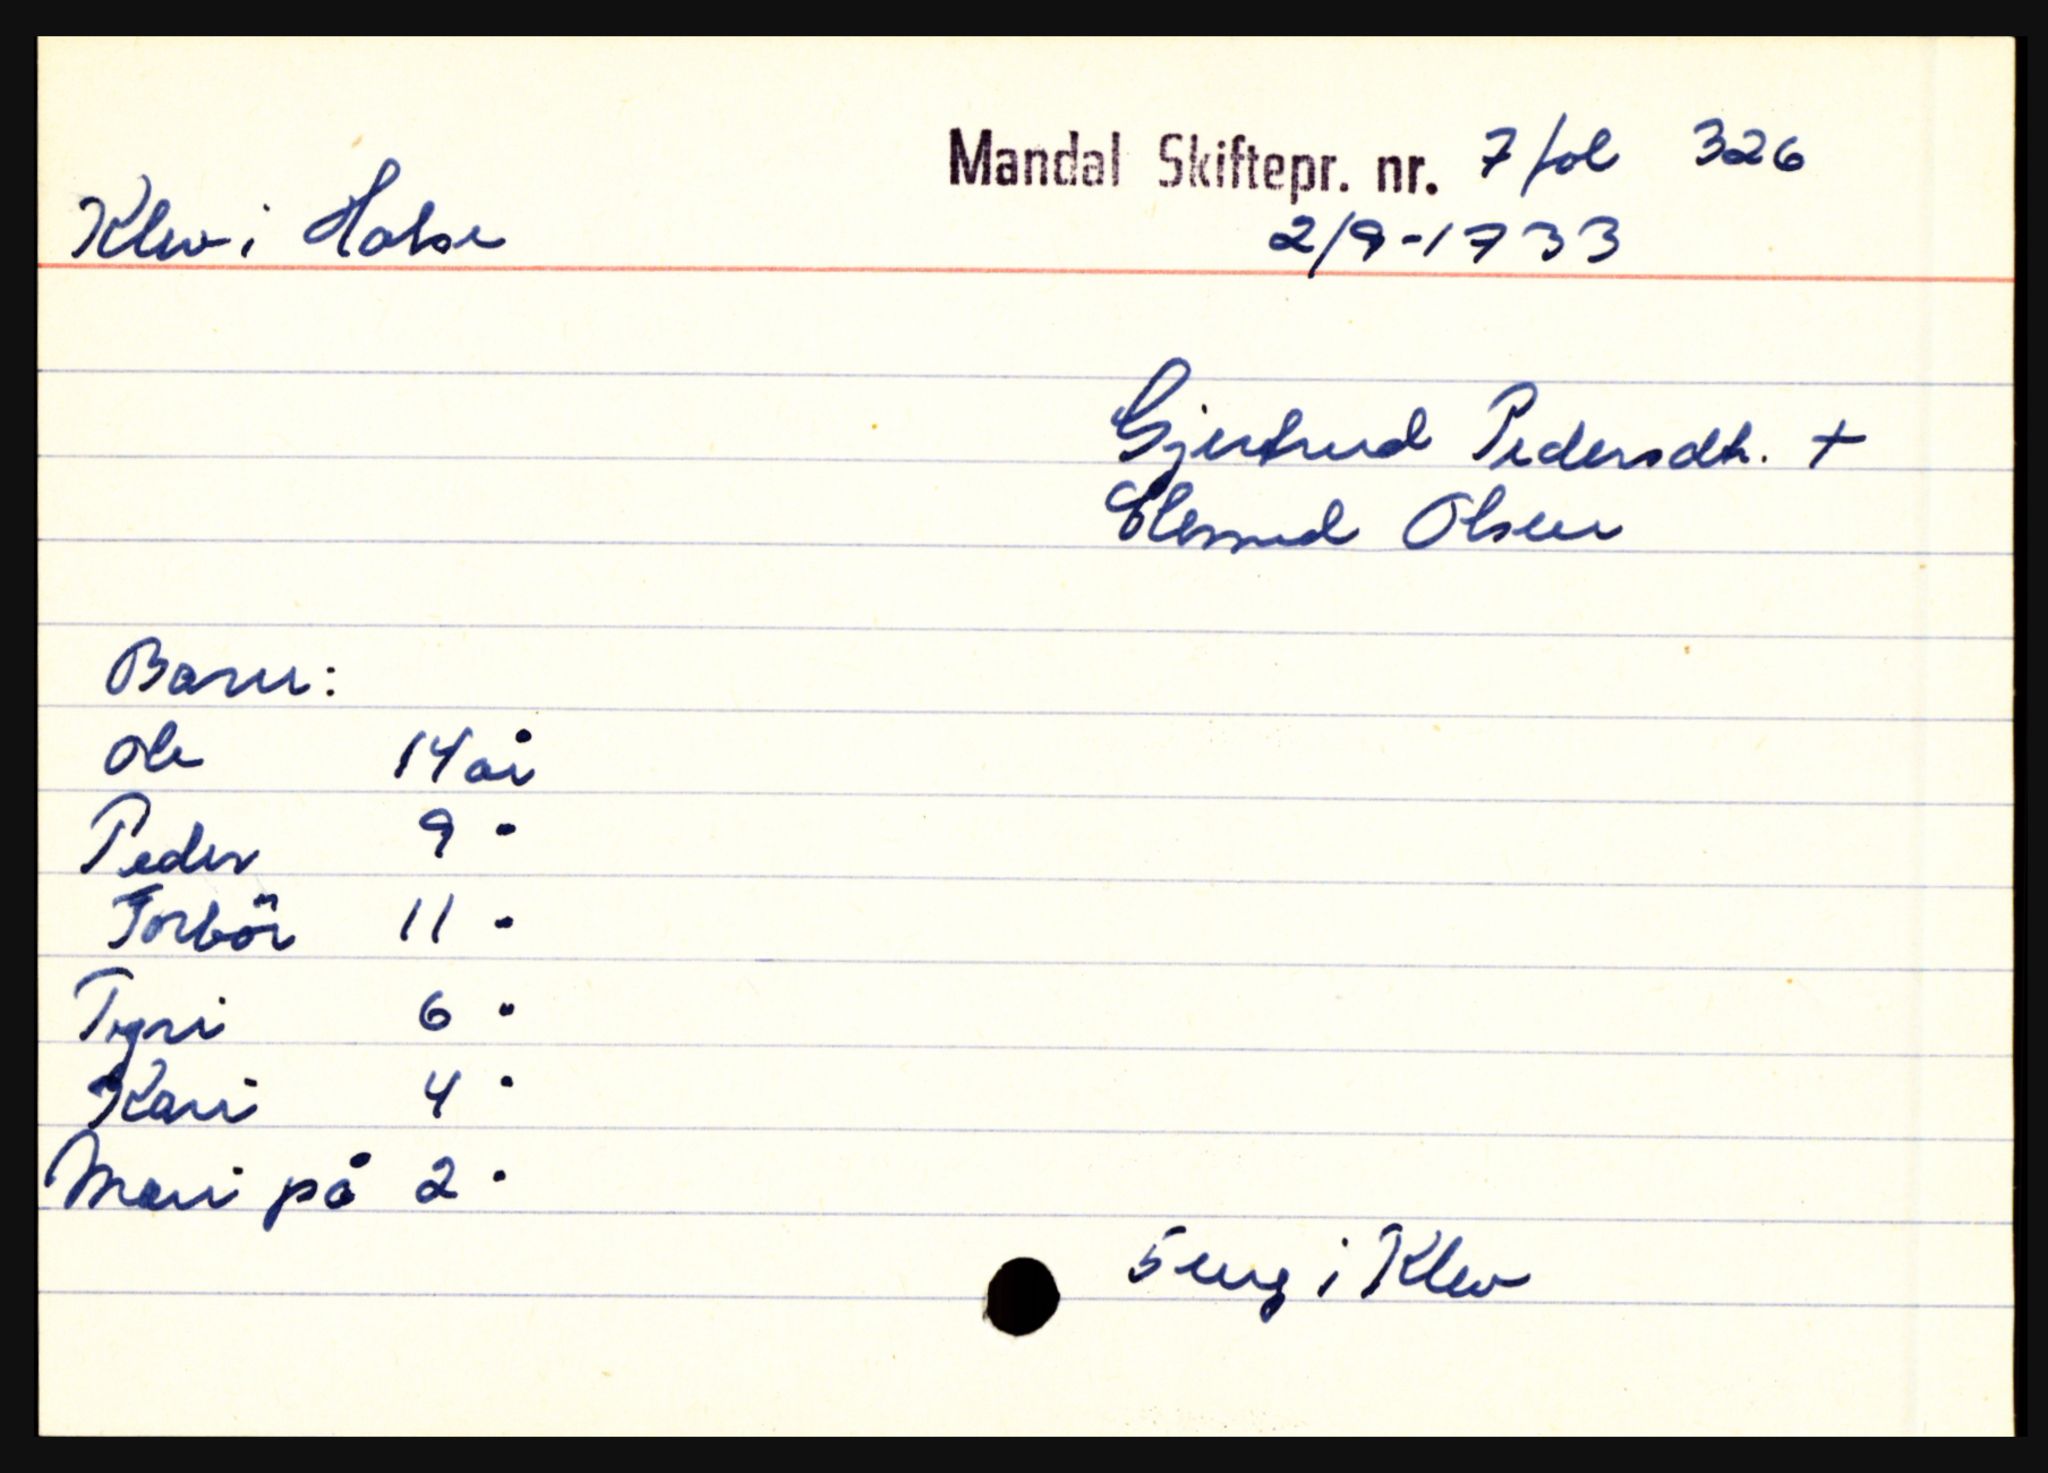 Mandal Skiftepr. nr. 7 fol 326
Klev i Halse 2/9-1733
Gjertrud Pedersdtr. +
Olsen
Barn:
Ole 14 år
Peder 9 "
Torbör 11 "
Tyri 6 "
Kari 4 "
Mari på 2 "
5 eng i Klev